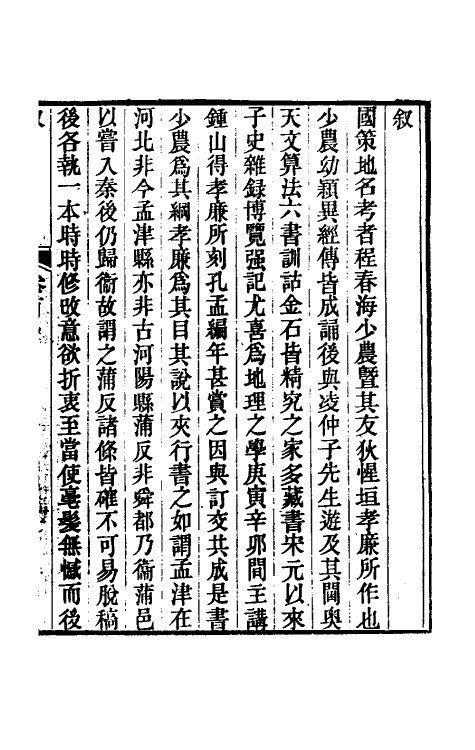 叙
國策地名考者程春海少農曁其友狄惺垣孝廉所作也
少農幼穎異經傳皆成誦後與凌仲子先生遊及其閫奥
天文算法六書訓詁金石皆精究之家多藏書宋元以來
子史雜録博覽强記尤喜爲地理之學庚寅辛卯間主講
鍾山得孝廉所刻孔孟編年甚賞之因與訂交共成是書
少農爲其綱孝廉爲其目其說以夾行書之如謂孟津在
河北非今孟津縣亦非古河陽縣蒲反非舜都乃衞蒲邑
以嘗入秦後仍歸衞故謂之蒲反諸條皆確不可易脫稿
後各執一本時時修改意欲折衷至當使毫髮無憾而後